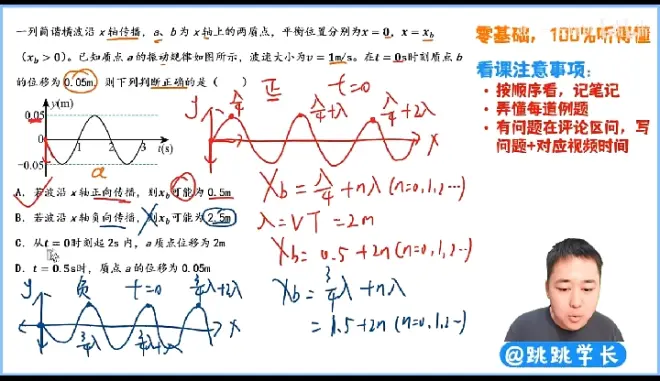 一列简谐横波沿x轴传播，a、b为x轴上的两质点，平衡位置分别为x=0，x=x_b
（x_b>0）。已知质点a的振动规律如图所示，波速大小为v=1m/s。在t=0s时刻质点b
的位移为0.05m，则下列判断正确的是（ ）
y(m)
0.05
0
-0.05
1
2
3
t(s)
a
A. 若波沿x轴正向传播，则x_b可能为0.5m
B. 若波沿x轴负向传播，则x_b可能为2.5m
C. 从t=0时刻起2s内，a质点位移为2m
D. t=0.5s时，质点a的位移为0.05m
正 t=0
y
λ/4
λ/4+λ
λ/4+2λ
x
X_b=λ/4+nλ(n=0,1,2…)
λ=VT=2m
X_b=0.5+2n(n=0,1,2…)
X_b=3/4λ+nλ
=1.5+2n(n=0,1,2…)
y
负 t=0
3/4λ+2λ
x
3/4λ
3/4λ+λ
零基础，100%听得懂
看课注意事项：
• 按顺序看，记笔记
• 弄懂每道例题
• 有问题在评论区问，写
问题+对应视频时间
@跳跳学长